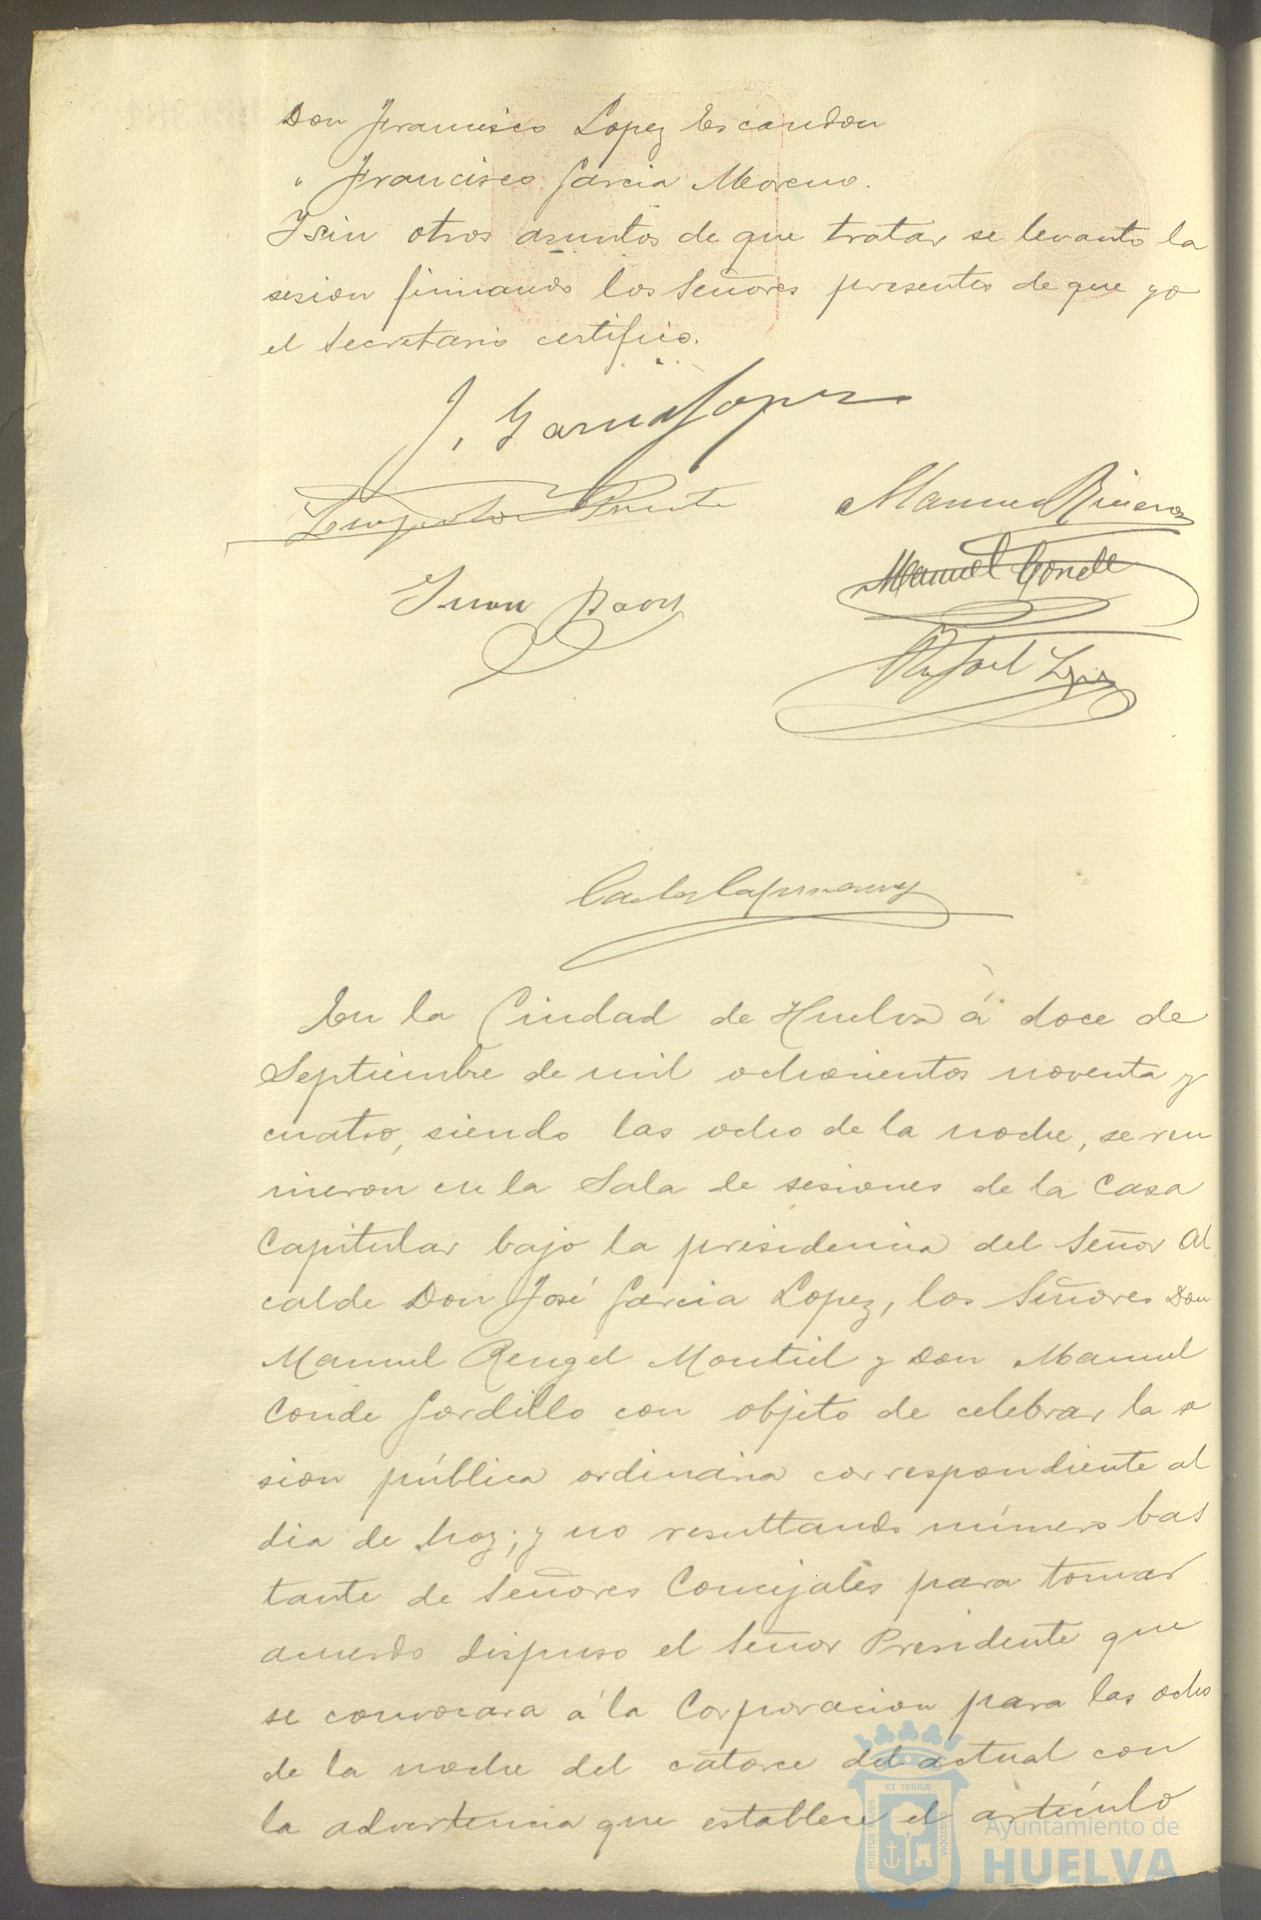 Don Francisco Lopez Escandon
" Francisco Garcia Moreno.
Y sin otros asuntos de que tratar se levanto la
sesion firmando los Señores presentes de que yo
el Secretario certifico.
J. Garcia Lopez
Manuel Rivera
Manuel Conde
Juan
Rafael Lopez
En la Ciudad de Huelva á doce de
Septiembre de mil ochocientos noventa y
cuatro, siendo las ocho de la noche, se reu
nieron en la Sala de sesiones de la Casa
Capitular bajo la presidencia del Señor Al
calde Don José Garcia Lopez, los Señores Don
Manuel Rengel Montiel y Don Manuel
Conde Gordillo con objeto de celebrar la se
sion pública ordinaria correspondiente al
dia de hoy; y no resultando número bas
tante de Señores Concejales para tomar
acuerdo dispuso el Señor Presidente que
se convocara á la Corporacion para las ocho
de la noche del catorce del actual con
la advertencia que establece el artículo
ET TERRÆ
PORTUS MARIS
CUSTODIA
Ayuntamiento de
HUELVA